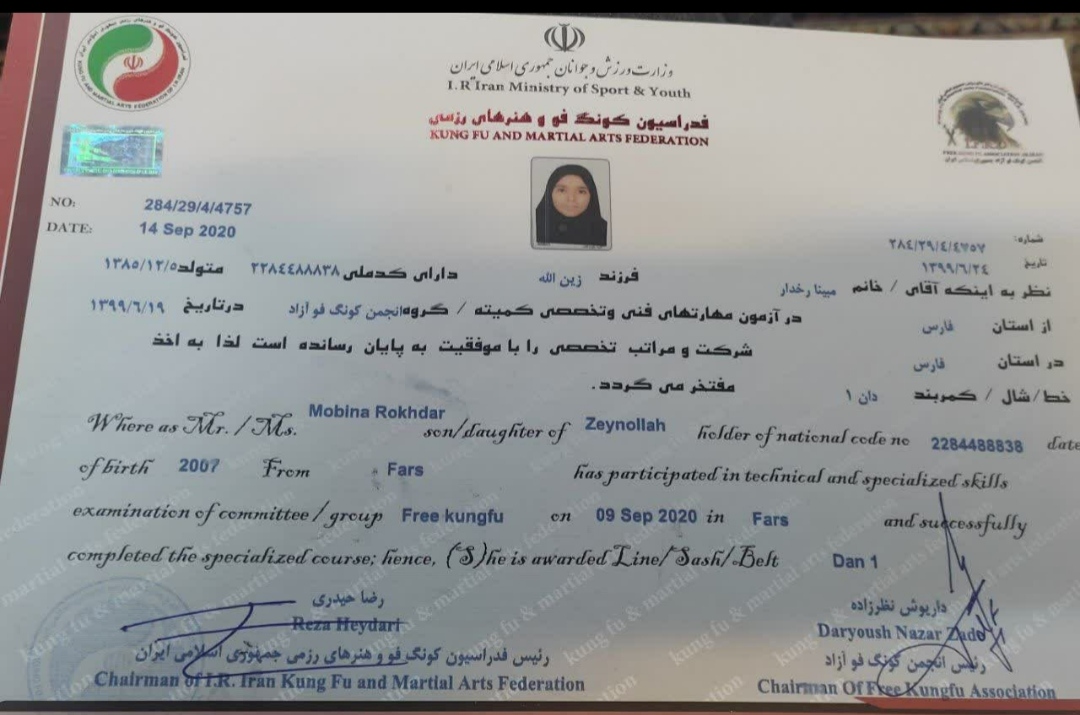 وزارت ورزش و جوانان جمهوری اسلامی ایران
I.R Iran Ministry of Sport & Youth
فدراسیون کونگ فو و هنرهای رزمی
KUNG FU AND MARTIAL ARTS FEDERATION
NO: 284/29/4/4757
DATE: 14 Sep 2020
شماره: ۲۸٤/۲۹/٤/٤۷۵۷
تاریخ ۱۳۹۹/٦/۲٤
نظر به اینکه آقای / خانم مبینا رخدار فرزند زین الله دارای کدملی ۲۲۸٤٤۸۸۸۳۸ متولد ۱۳۸۵/۱۲/۵
از استان فارس در آزمون مهارتهای فنی وتخصصی کمیته / گروه انجمن کونگ فو آزاد درتاریخ ۱۳۹۹/٦/۱۹
در استان فارس شرکت و مراتب تخصصی را با موفقیت به پایان رسانده است لذا به اخذ
خط/شال / کمربند دان ۱ مفتخر می گردد.
Where as Mr. / Ms. Mobina Rokhdar son/daughter of Zeynollah holder of national code no 2284488838 date
of birth 2007 From Fars has participated in technical and specialized skills
examination of committee / group Free kungfu on 09 Sep 2020 in Fars and successfully
completed the specialized course; hence, (S)he is awarded Line/Sash/Belt Dan 1
رضا حیدری
Reza Heydari
رئیس فدراسیون کونگ فو و هنرهای رزمی جمهوری اسلامی ایران
Chairman of I.R. Iran Kung Fu and Martial Arts Federation
داریوش نظرزاده
Daryoush Nazar Zade
رئیس انجمن کونگ فو آزاد
Chairman Of Free Kungfu Association
kung fu & martial arts federation